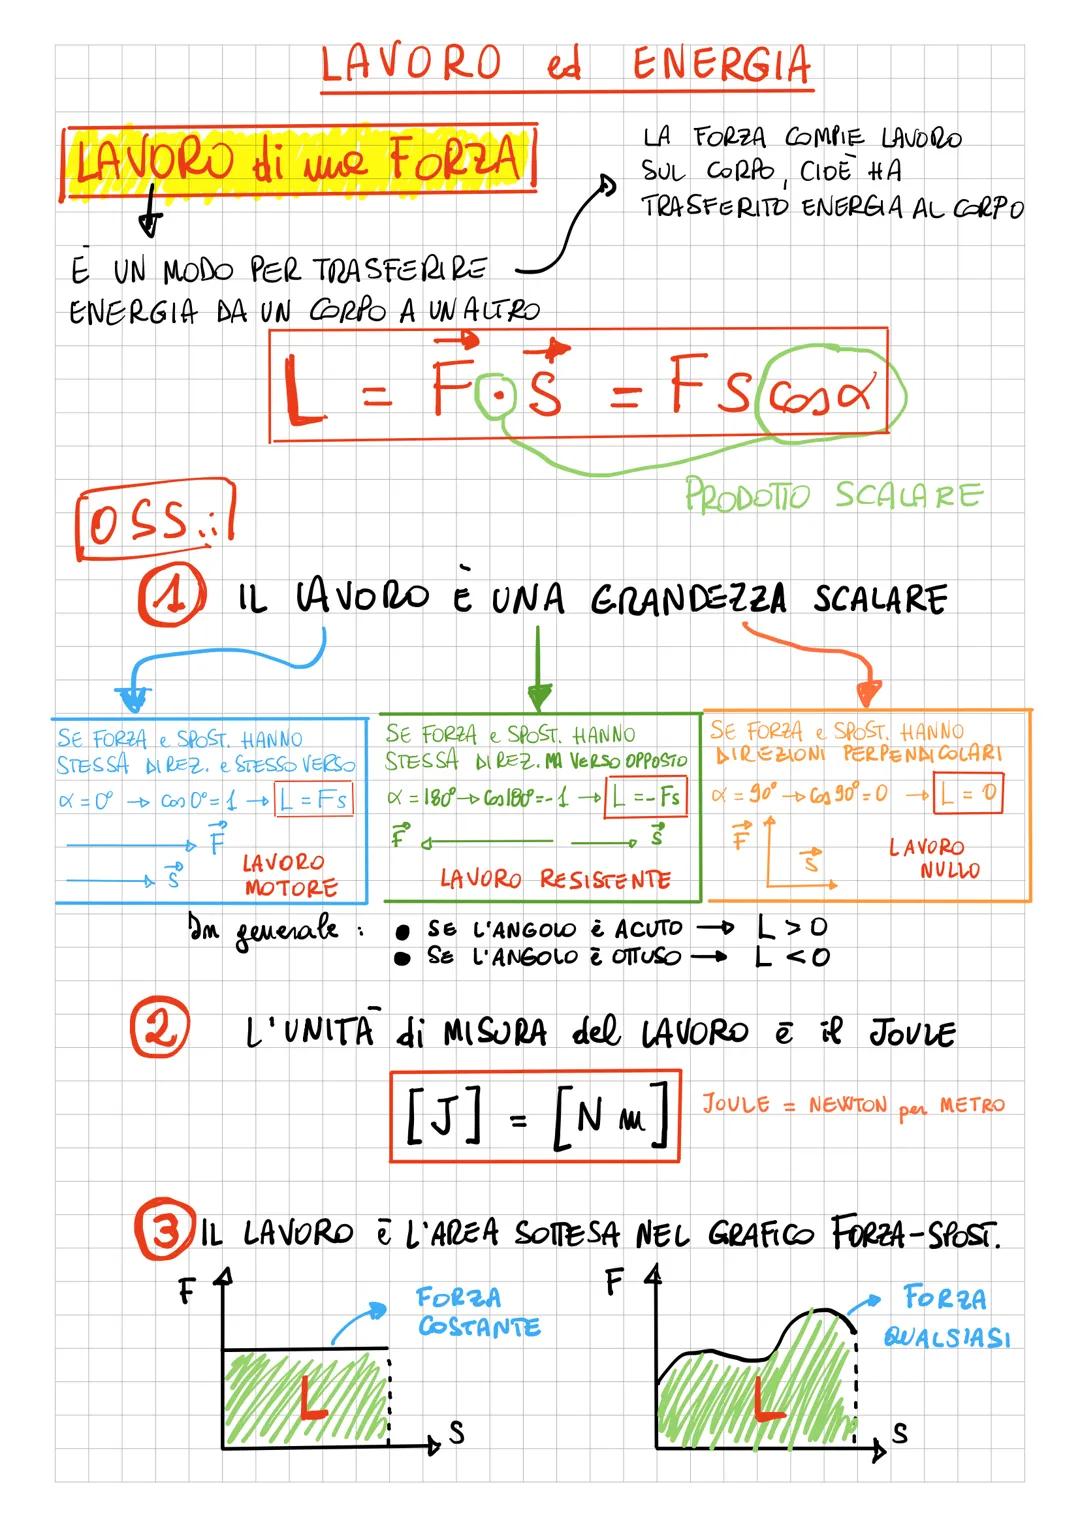 LAVORO ed ENERGIA
LAVORO di una FORZA
LA FORZA COMPIE LAVORO
SUL CORPO, CIOÈ HA
TRASFERITO ENERGIA AL CORPO
È UN MODO PER TRASFERIRE
ENERGIA DA UN CORPO A UN ALTRO
L = F⃗ · s⃗ = F s cos α
PRODOTTO SCALARE
OSS.:
1 IL LAVORO È UNA GRANDEZZA SCALARE
SE FORZA e SPOST. HANNO
STESSA DIREZ. e STESSO VERSO
α = 0° → cos 0° = 1 → L = Fs
F⃗
s⃗
LAVORO
MOTORE
SE FORZA e SPOST. HANNO
STESSA DIREZ. MA VERSO OPPOSTO
α = 180° → cos 180° = -1 → L = - Fs
F⃗ s⃗
LAVORO RESISTENTE
SE FORZA e SPOST. HANNO
DIREZIONI PERPENDICOLARI
α = 90° → cos 90° = 0 → L = 0
F⃗
s⃗
LAVORO
NULLO
In generale :
• SE L'ANGOLO È ACUTO → L > 0
• SE L'ANGOLO È OTTUSO → L < 0
2 L'UNITÀ di MISURA del LAVORO è il JOULE
[J] = [N m]
JOULE = NEWTON per METRO
3 IL LAVORO È L'AREA SOTTESA NEL GRAFICO FORZA-SPOST.
F
FORZA
COSTANTE
L
S
F
FORZA
QUALSIASI
L
S